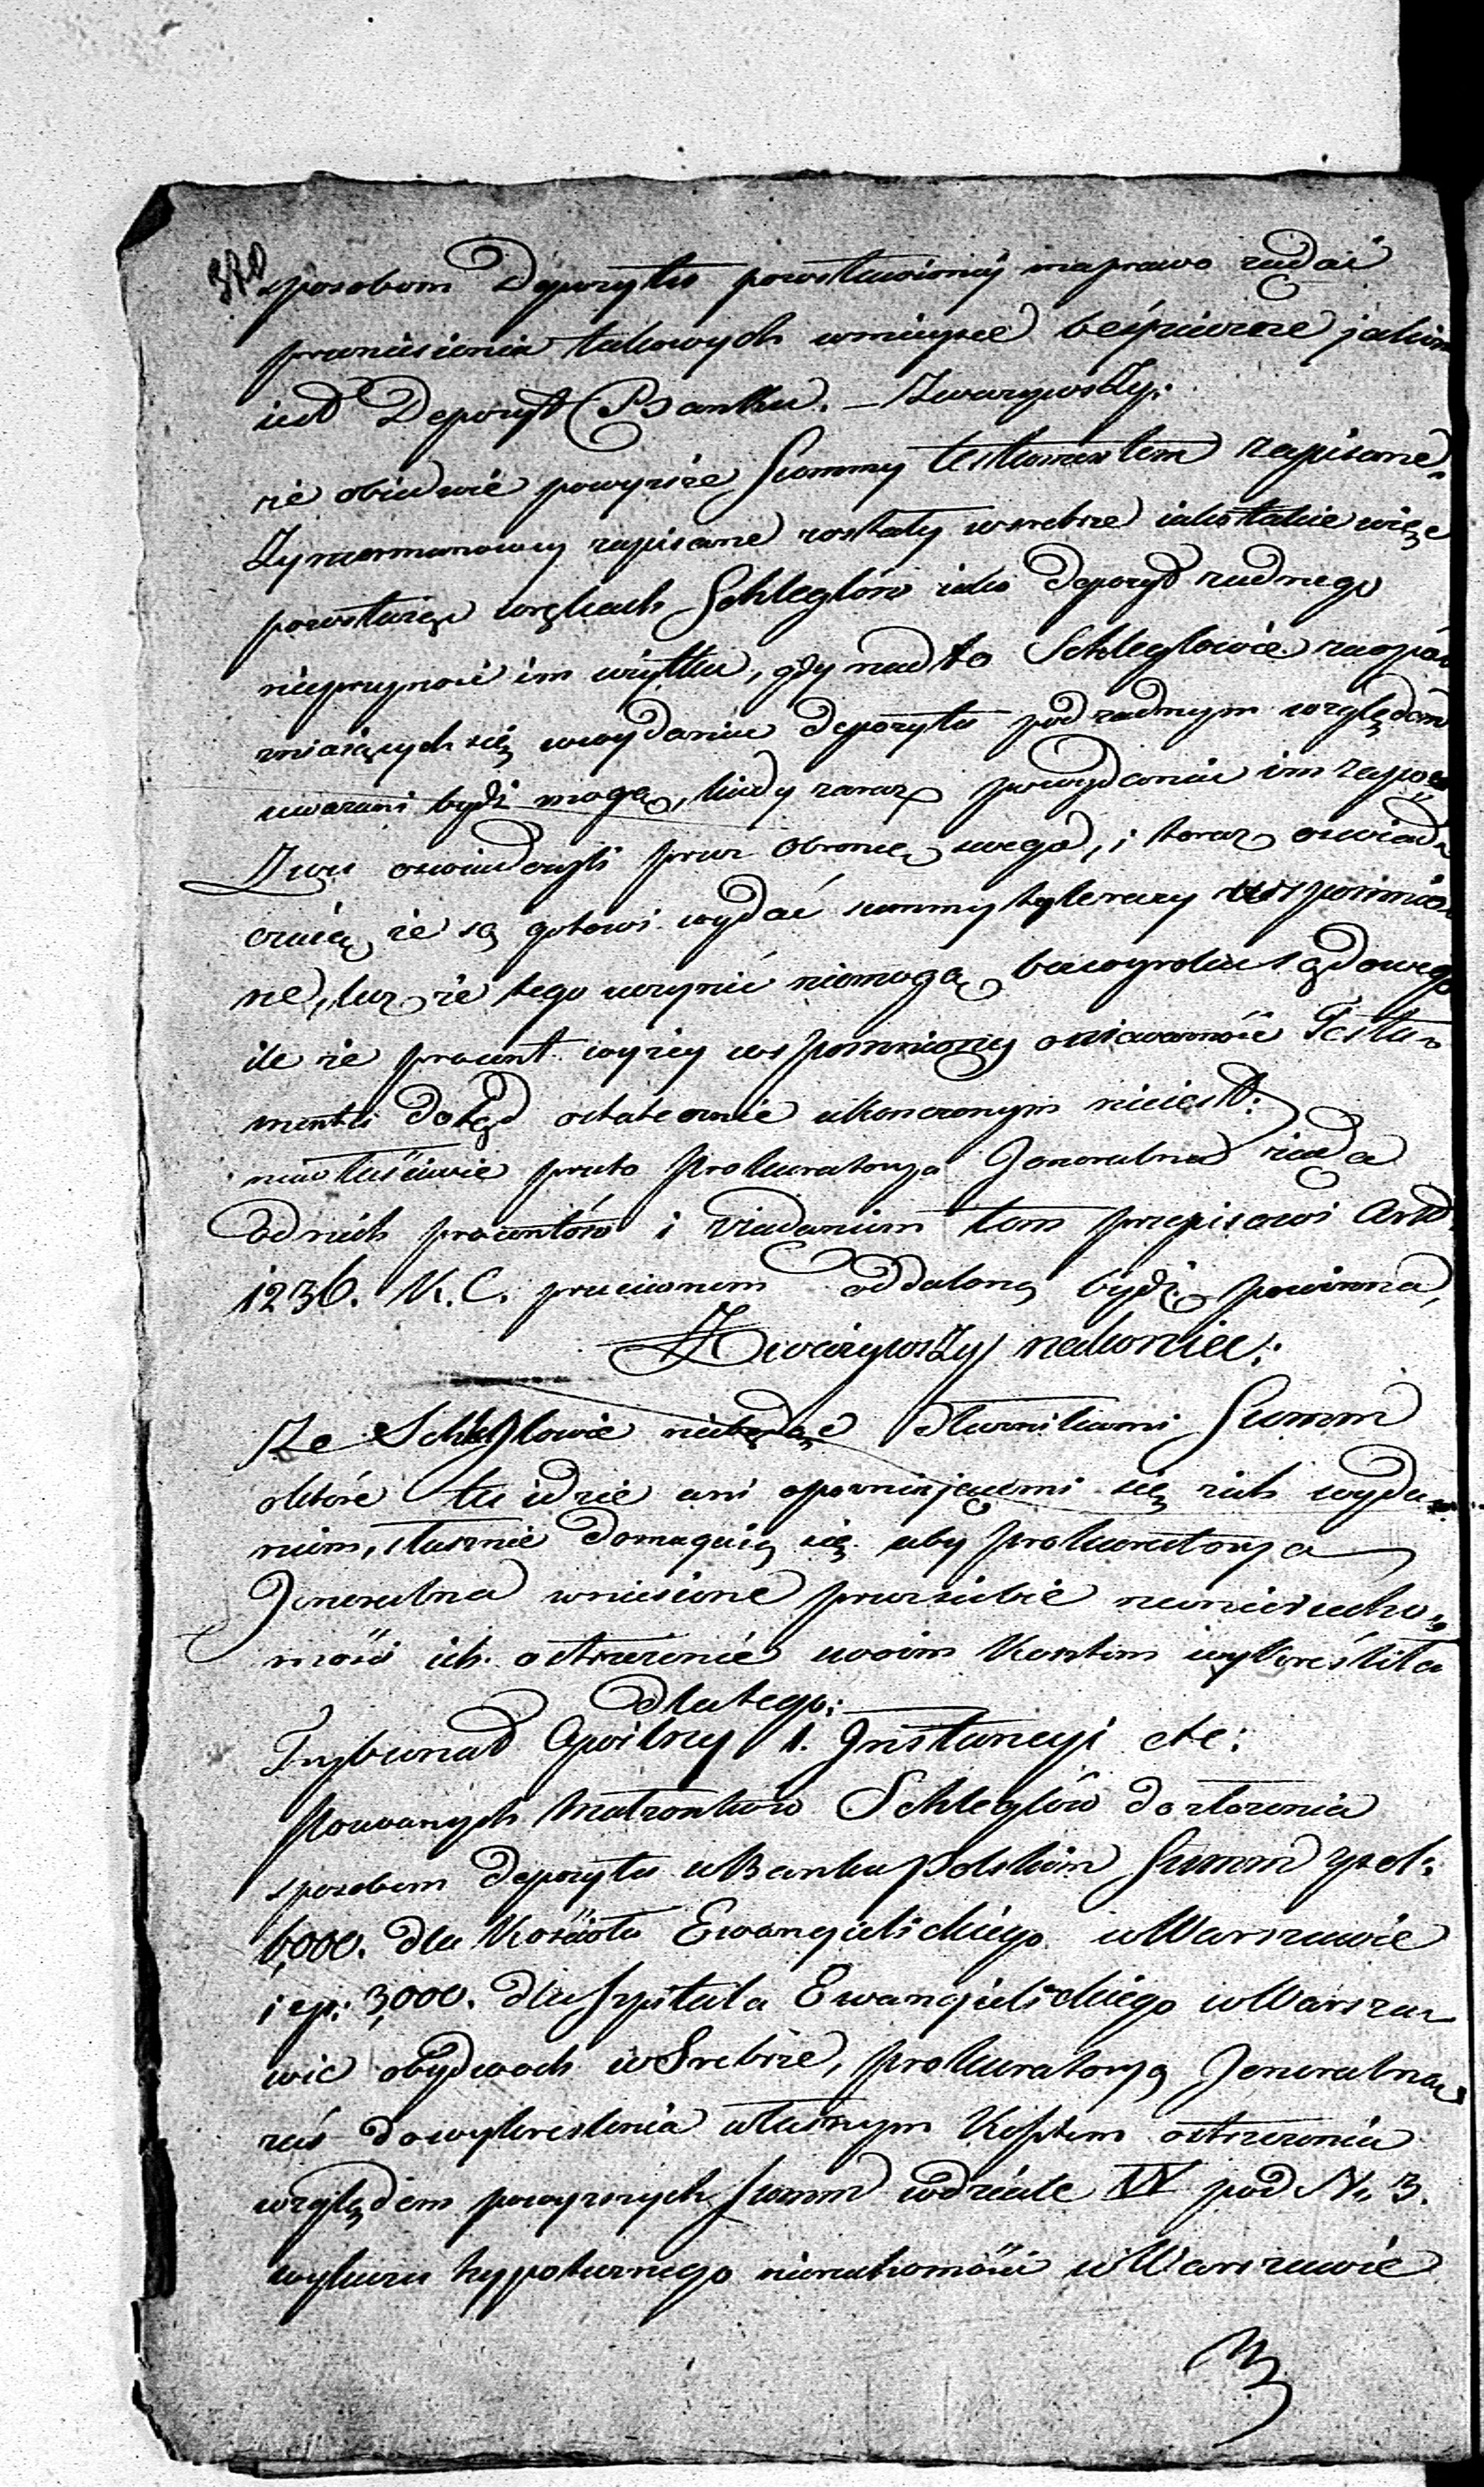 370
sposobem Depozytu powstawioney ma prawo żądać
przeniesienia takowych w mieysce bespieczne jakim
iest Depozyt Banku. — Zważywszy:
że obiedwie powyższe Summy testamentem zapisane
Zymermanowey zapisane zostały w srebrze iako takie więc
pozostaiąc w rękach Schleglów iako depozyt żadnego
nieprzynosić im użytku, gdy nadto Schleglowie za opóź
niaiących się w wydaniu depozytu pod żadnym względem
uważani bydź mogą, kiedy zaraz po wydaniu im zapo
zwu oswiadczyli przez obrońcę swego, i teraz oswiad
czaią, że są gotowi wydać summy tylerazy wspomnio
ne, lecz że tego uczynić niemogą bez wyroku sądowego
ile że process wyżey wspomniony o nieważność Testa-
mentu dotąd ostatecznie ukończonym nieiest:
niewłaściwie przeto Prokuratorya Jeneralna żąda
od nich procentów i z żądaniem tem przepisowi Art.
1236. K. C. przeciwnem oddaloną bydź powinna,
Zważywszy nakoniec:
Że Schleglowie niebędąc dłużnikami Summ
o które tu idzie ani opóźniaiącemi się z ich wyda-
niem, słusznie domagaią się aby Prokuratorya
Jeneralna wniesione przez siebie na nieruchom-
mości ich ostrzeżenie swoim kosztem wykreśliła
dlatego:
Trybunał Cywilny 1. Instancyi etc:
Pozwanych Małżonków Schleglów do złożenia
sposobem depozytu w Banku Polskim Summ zpol:
6,000. dla Kościoła Ewangielickiego w Warszawie
i zp: 3,000. dla szpitala Ewangielickiego w Warsza-
wie obydwóch w Srebrze, Prokuratoryą Jeneralną
zaś do wykreślenia własnym Kosztem ostrzeżenia
względem powyższych Summ w dziale IV pod Nr. 3.
wykazu hypotecznego nieruchomości w Warszawie